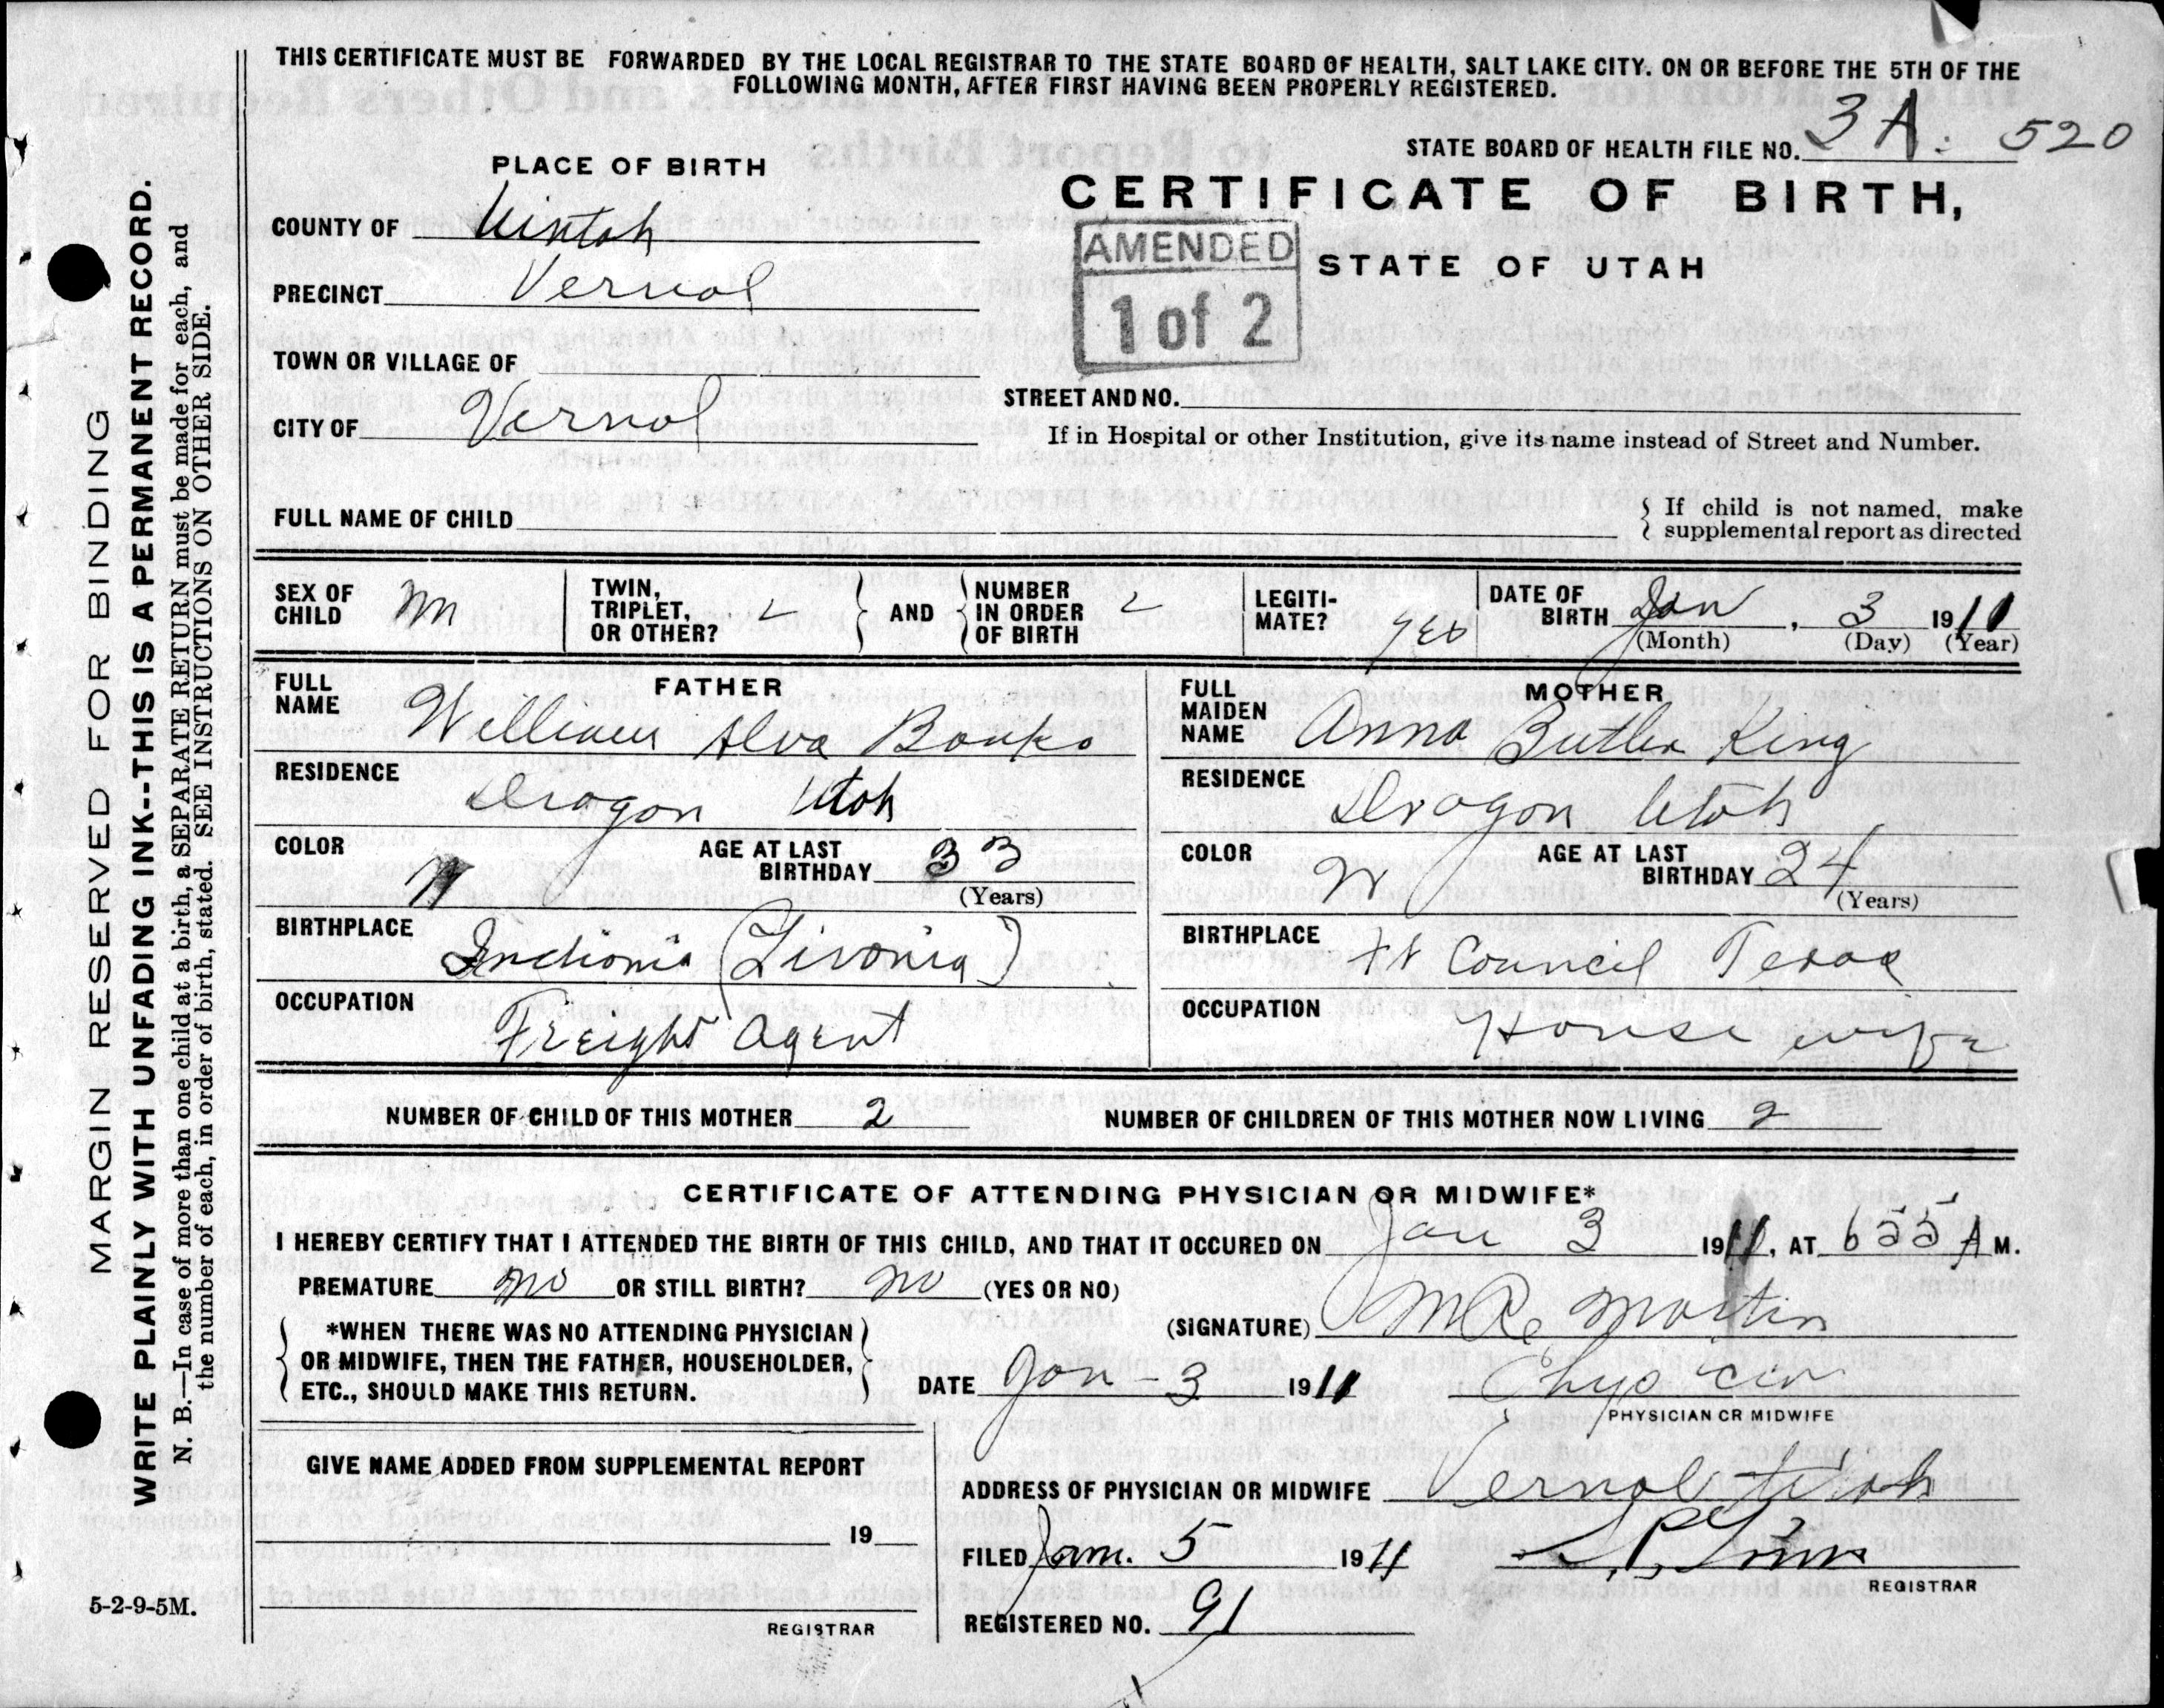 THIS CERTIFICATE MUST BE FORWARDED BY THE LOCAL REGISTRAR TO THE STATE BOARD OF HEALTH, SALT LAKE CITY. ON OR BEFORE THE 5TH OF THE
FOLLOWING MONTH, AFTER FIRST HAVING BEEN PROPERLY REGISTERED.
STATE BOARD OF HEALTH FILE NO. 3A: 520
PLACE OF BIRTH
CERTIFICATE OF BIRTH,
COUNTY OF Uintah
AMENDED
1 of 2
STATE OF UTAH
PRECINCT Vernal
TOWN OR VILLAGE OF
STREET AND NO.
CITY OF Vernal
If in Hospital or other Institution, give its name instead of Street and Number.
FULL NAME OF CHILD
If child is not named, make
supplemental report as directed
SEX OF CHILD M
TWIN, TRIPLET, OR OTHER? 2
AND
NUMBER IN ORDER OF BIRTH 2
LEGITI- MATE? yes
DATE OF BIRTH Jan, 3 1911
(Month) (Day) (Year)
FATHER
FULL NAME William Alva Banks
RESIDENCE Dragon Utah
COLOR W
AGE AT LAST BIRTHDAY 33
(Years)
BIRTHPLACE Indiania (Livonia)
OCCUPATION Freight agent
MOTHER
FULL MAIDEN NAME Anna Butler King
RESIDENCE Dragon Utah
COLOR W
AGE AT LAST BIRTHDAY 24
(Years)
BIRTHPLACE Ft Council Texas
OCCUPATION House wife
NUMBER OF CHILD OF THIS MOTHER 2
NUMBER OF CHILDREN OF THIS MOTHER NOW LIVING 2
CERTIFICATE OF ATTENDING PHYSICIAN OR MIDWIFE*
I HEREBY CERTIFY THAT I ATTENDED THE BIRTH OF THIS CHILD, AND THAT IT OCCURED ON Jan 3 1911, AT 655 A M.
PREMATURE no OR STILL BIRTH? no (YES OR NO)
*WHEN THERE WAS NO ATTENDING PHYSICIAN
OR MIDWIFE, THEN THE FATHER, HOUSEHOLDER,
ETC., SHOULD MAKE THIS RETURN.
(SIGNATURE) Martin
DATE Jan - 3 1911
PHYSICIAN OR MIDWIFE
GIVE NAME ADDED FROM SUPPLEMENTAL REPORT
19
REGISTRAR
ADDRESS OF PHYSICIAN OR MIDWIFE Vernal Utah
FILED Jan. 5 1911
REGISTRAR
REGISTERED NO. 91
MARGIN RESERVED FOR BINDING
WRITE PLAINLY WITH UNFADING INK--THIS IS A PERMANENT RECORD.
N. B.—In case of more than one child at a birth, a SEPARATE RETURN must be made for each, and
the number of each, in order of birth, stated. SEE INSTRUCTIONS ON OTHER SIDE.
5-2-9-5M.